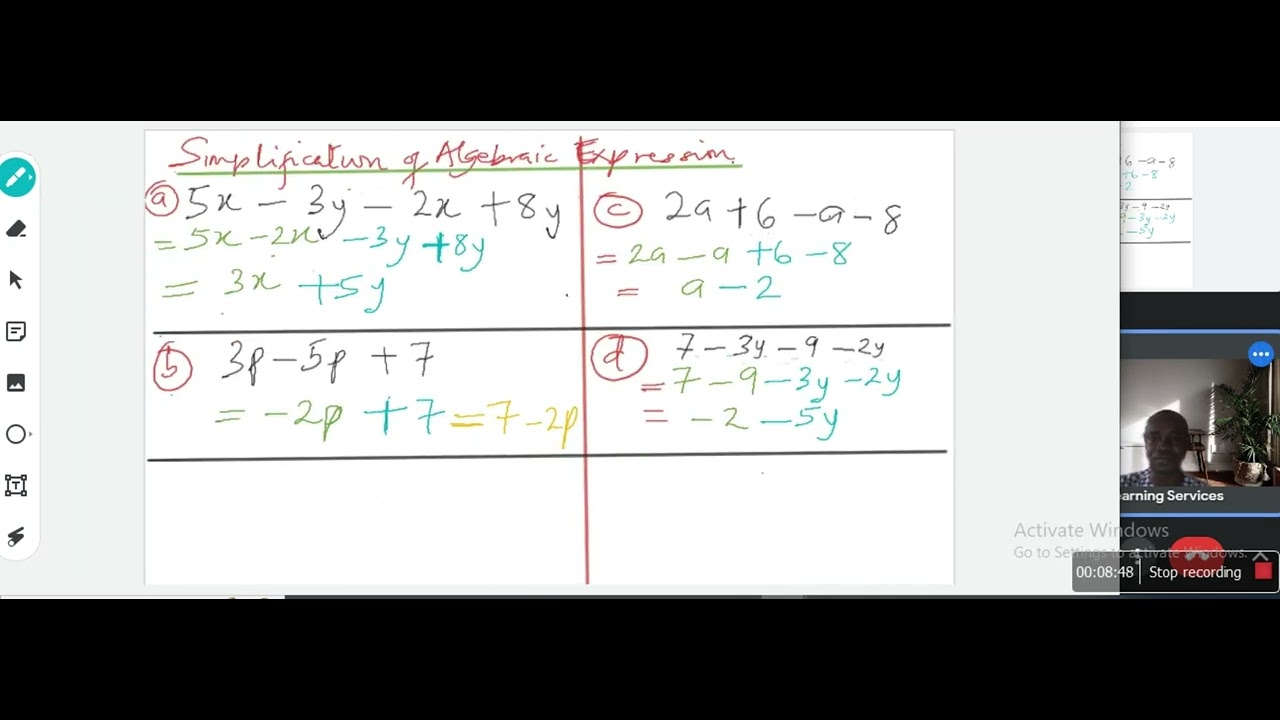 Simplification of Algebraic Expression.
(a) 5x - 3y - 2x + 8y
= 5x - 2x - 3y + 8y
= 3x + 5y
(b) 3p - 5p + 7
= -2p + 7 = 7 - 2p
(c) 2a + 6 - a - 8
= 2a - a + 6 - 8
= a - 2
(d) 7 - 3y - 9 - 2y
= 7 - 9 - 3y - 2y
= -2 - 5y
6 - a - 8
+6 - 8
2
3y - 9 - 2y
9 - 3y - 2y
- 5y
earning Services
Activate Windows
Go to Settings to activate Windows.
00:08:48 | Stop recording